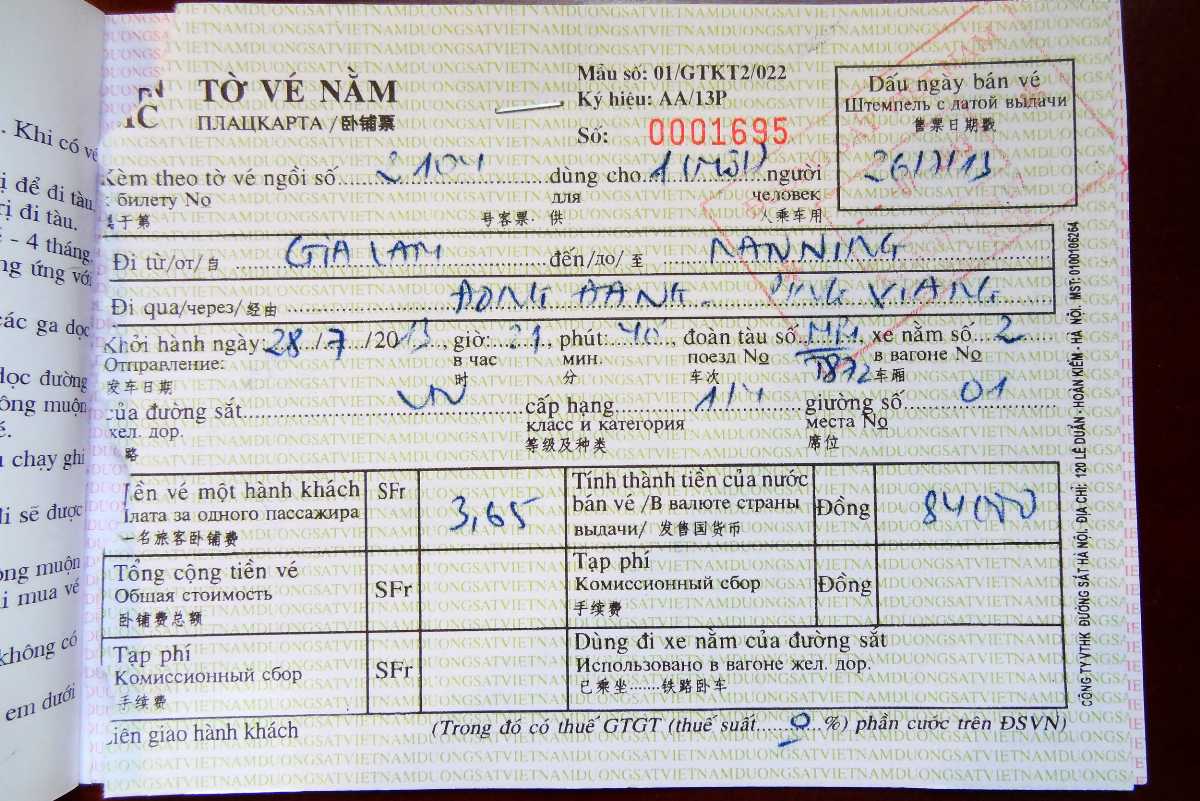 . Khi có vé
ị để đi tàu,
rị đi tàu.
- 4 tháng,
ng ứng với
các ga dọc
dọc đường
ông muốn
é.
u chạy ghi
li sẽ được
ông muốn
i mua vé
không có
em dưới
TỜ VÉ NẰM
ПЛАЦКАРТА / 卧铺票
Mẫu số: 01/GTKT2/022
Ký hiệu: AA/13P
Số: 0001695
Dấu ngày bán vé
Штемпель с датой выдачи
售票日期戳
26/7/13
Kèm theo tờ vé ngồi số 2104 dùng cho 1 (MỘT) người
к билету No для человек
基于第 号客票. 供 人乘车用
Đi từ/от/自 GIA LAM đến/до/至 NANNING
Đi qua/через/经由 DONG DANG - PING XIANG
Khởi hành ngày: 28/7/2013, giờ: 21, phút: 40, đoàn tàu số MR1, xe nằm số 2
Отправление: в час мин. поезд No T872 в вагоне No
发车日期 时 分 车次 车厢
của đường sắt VN cấp hạng 1/4 giường số 01
жел. дор. класс и категория места No
路 等级及种类 席位
Tiền vé một hành khách SFr 3,65
Плата за одного пассажира
一名旅客卧铺费
Tính thành tiền của nước
bán vé /В валюте страны Đồng 84000
выдачи/ 发售国货币
Tổng cộng tiền vé
Общая стоимость SFr
卧铺费总额
Tạp phí
Комиссионный сбор Đồng
手续费
Tạp phí
Комиссионный сбор SFr
手续费
Dùng đi xe nằm của đường sắt
Использовано в вагоне жел. дор.
已乘坐........铁路卧车
Liên giao hành khách (Trong đó có thuế GTGT (thuế suất 0 %) phần cước trên ĐSVN)
CÔNG TY VTHK ĐƯỜNG SẮT HÀ NỘI. ĐỊA CHỈ: 120 LÊ DUẨN - HOÀN KIẾM - HÀ NỘI. MST: 0100106264